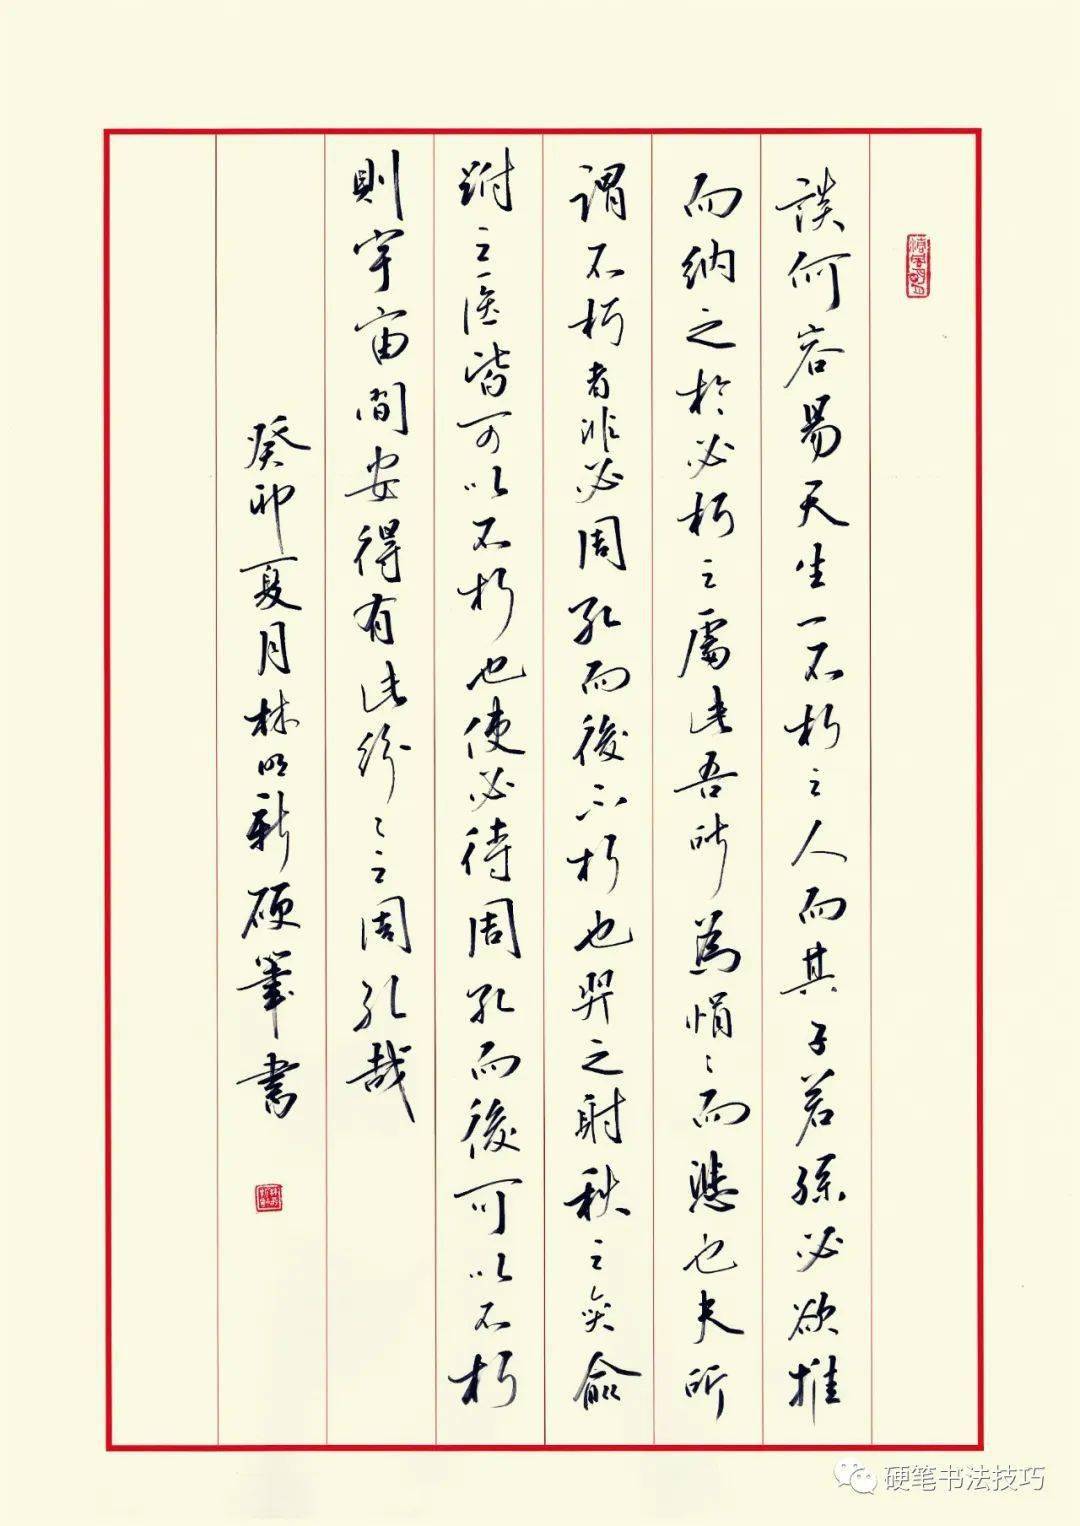 談何容易天生一不朽之人而其子若孫必欲推
而納之於必朽之處此吾所為悁々而悲也夫所
謂不朽者非必周孔而後不朽也羿之射秋之奕俞
跗之医皆可以不朽也使必待周孔而後可以不朽
則宇宙間安得有此紛々之周孔哉
癸卯夏月林明新硬筆書
硬笔书法技巧